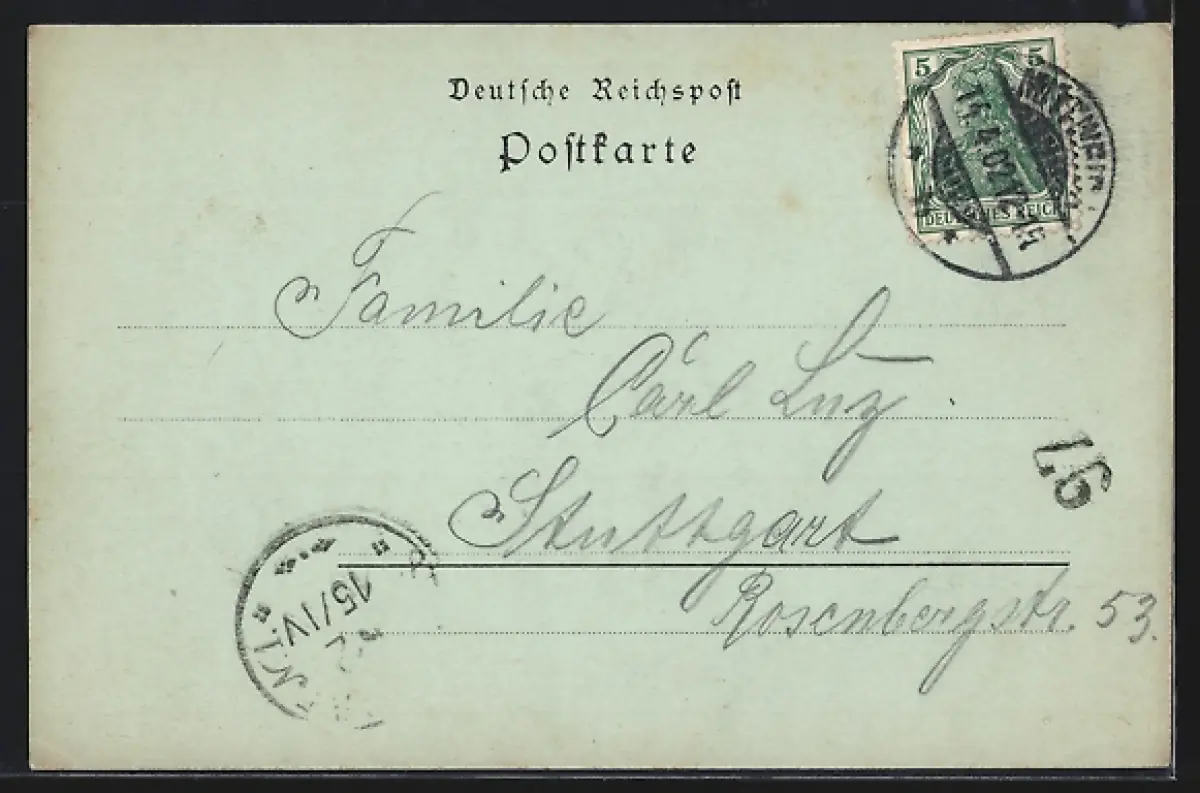 Deutsche Reichspost
Postkarte
5 5
DEUTSCHES REICH
4.02
Familie
Carl Luz
Stuttgart
Rosenbergstr. 53.
15/IV.